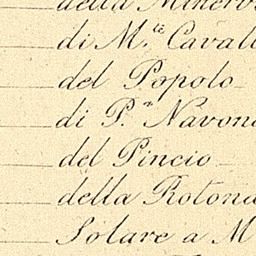 della Minerv
di M.te Cavall
del Popolo
di P.a Navon
del Pincio
della Rotond
Solare a M